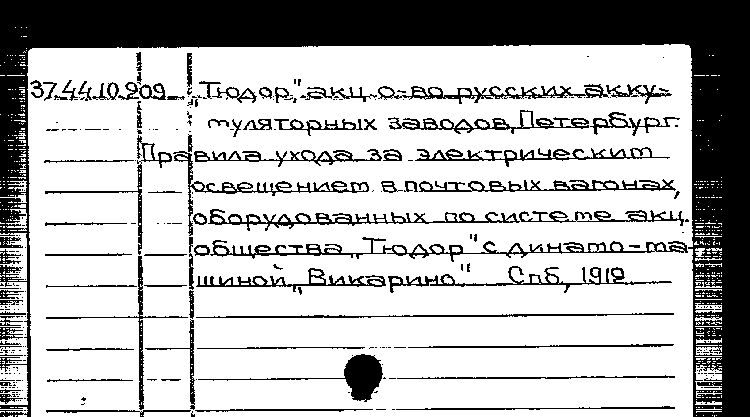 37.44.10.209 „Тюдор", акц. о-во русских акку-
муляторных заводов, Петербург.
Правила ухода за электрическим
освещением в почтовых вагонах,
оборудованных по системе акц.
общества „Тюдор" с динамо-ма-
шиной „Викарино". Спб, 1912